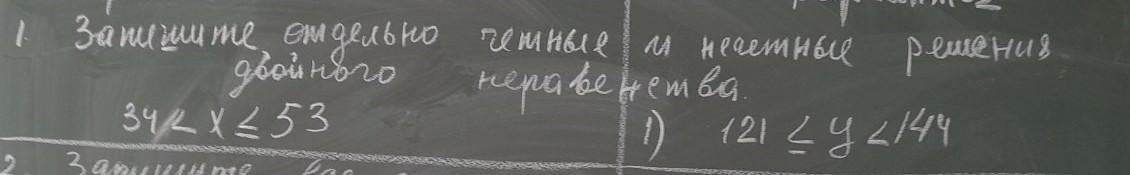 1. Запишите отдельно четные и нечетные решения
двойного неравенства.
34 < x ≤ 53
1) 121 ≤ y < 144
2. Запишите